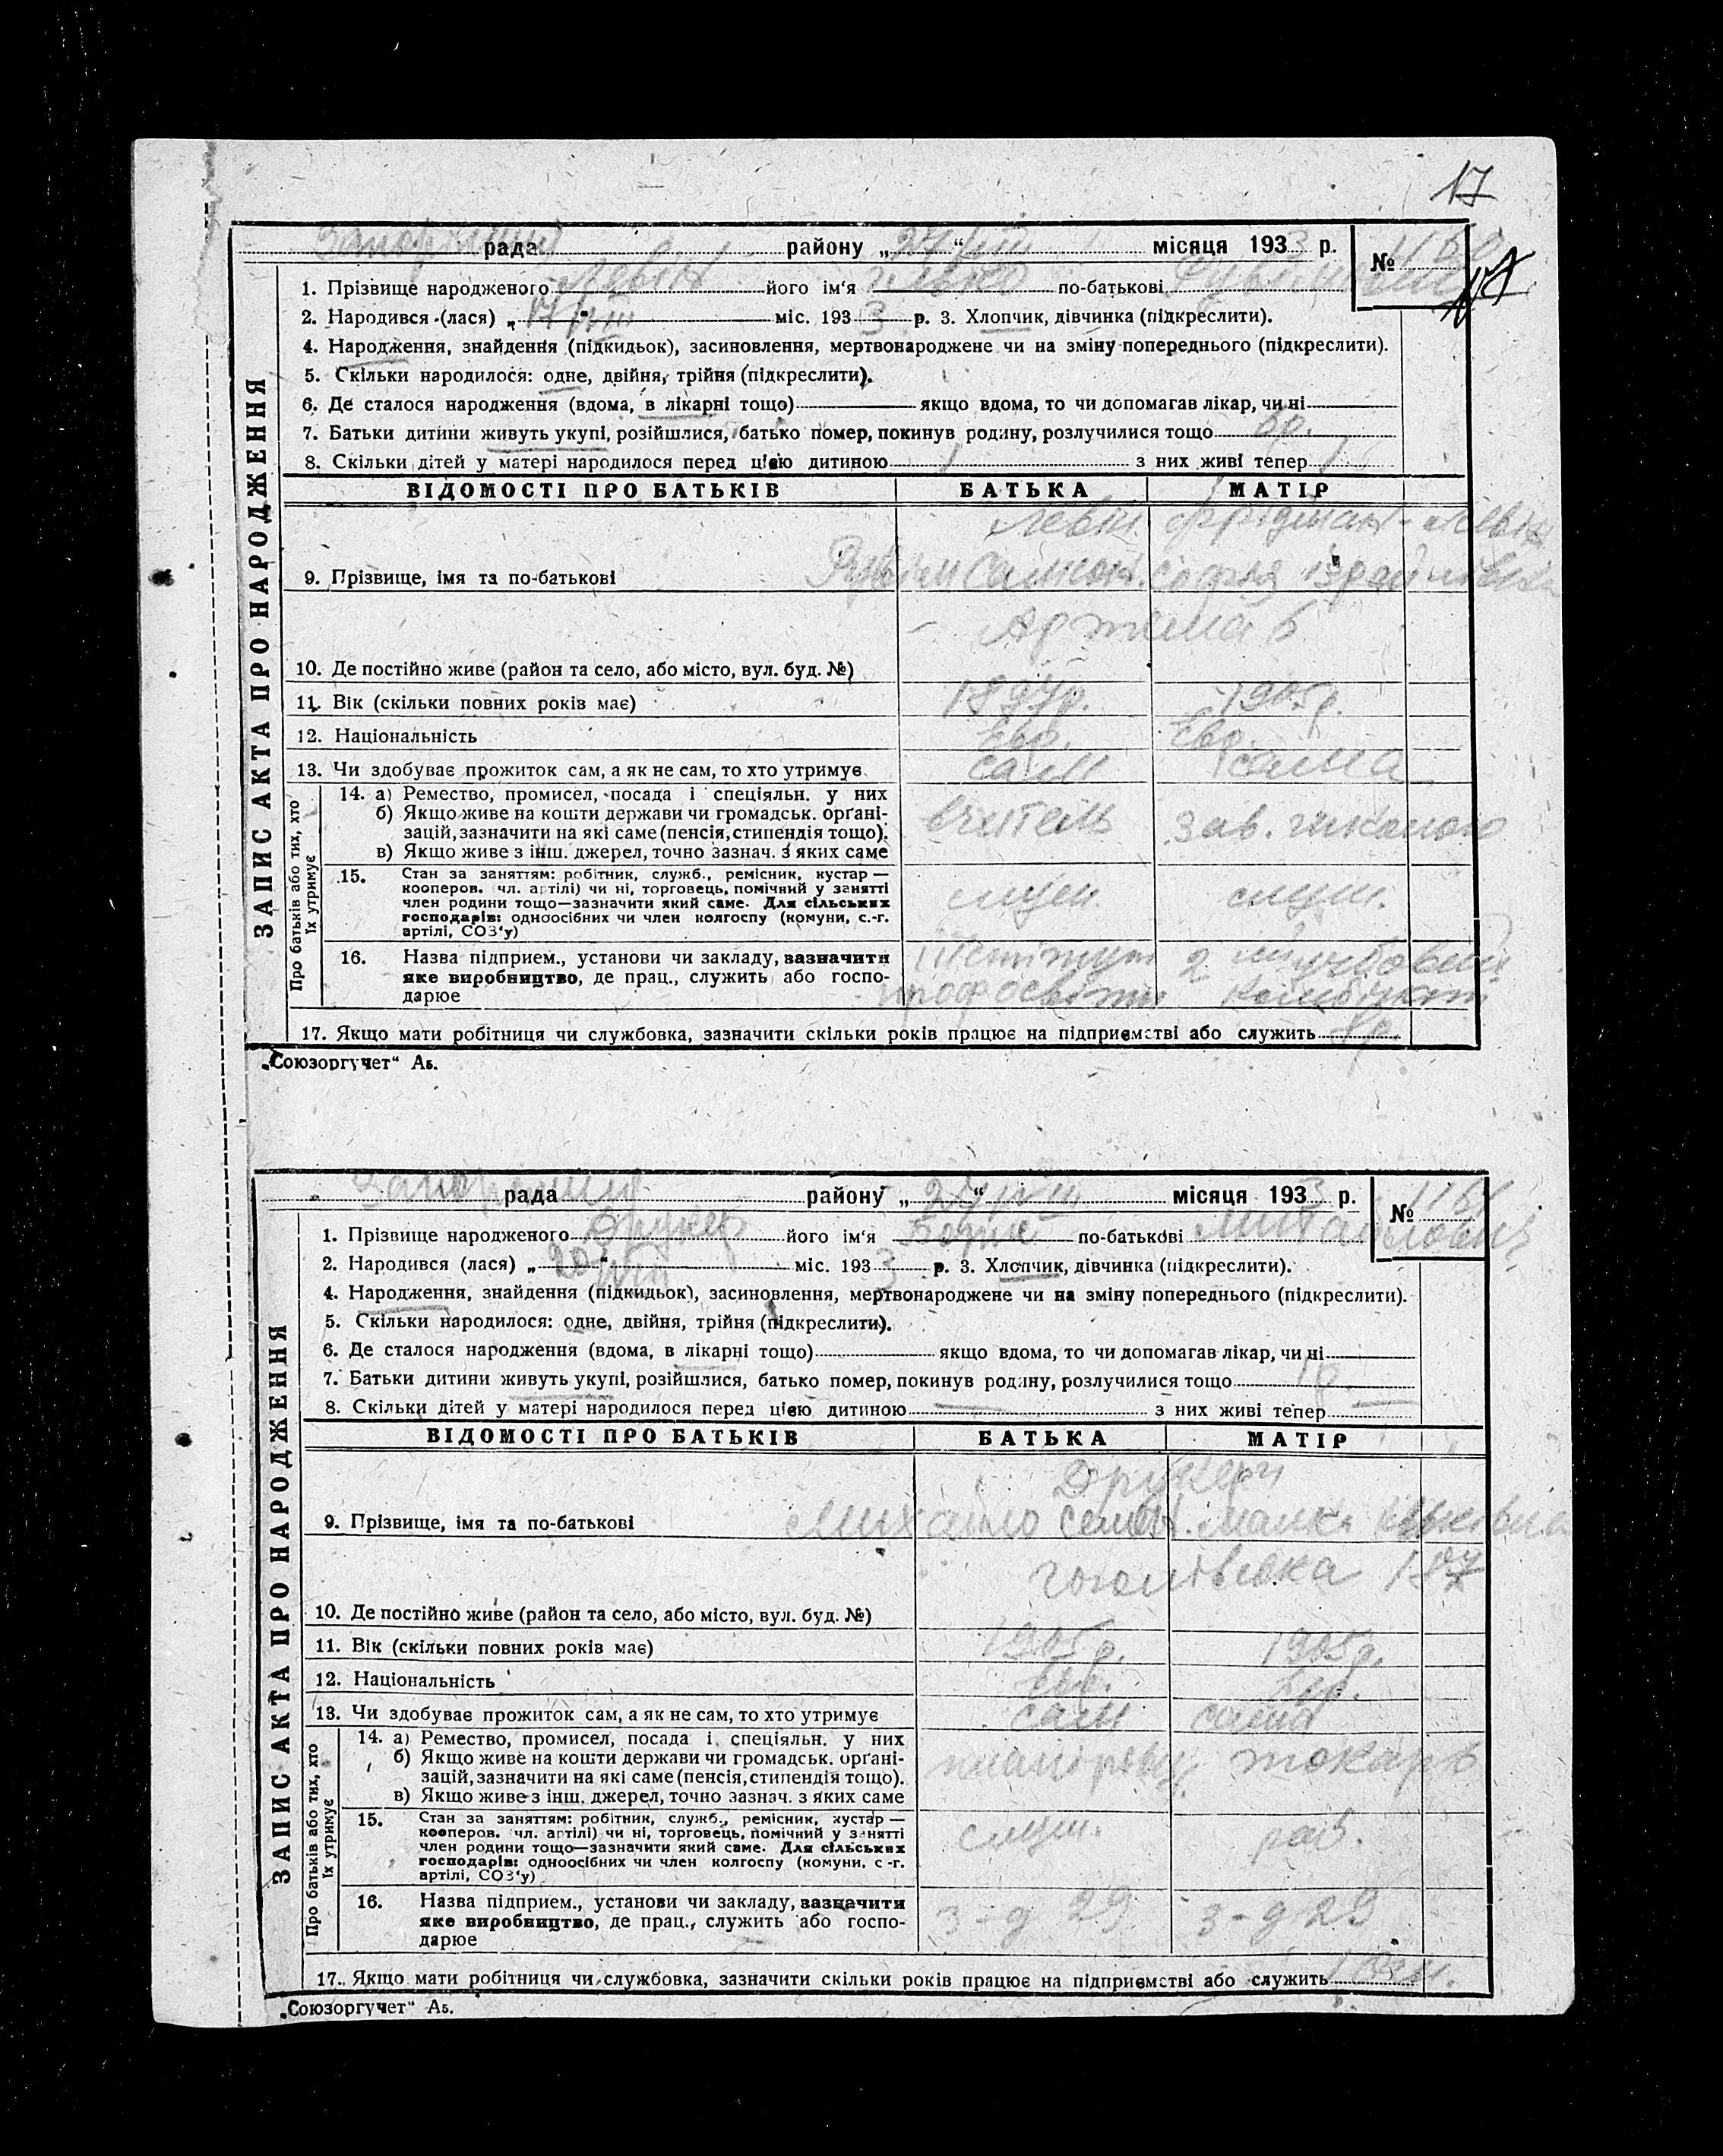 17
рада району „27 VIII“ місяця 1933 р. №
1. Прізвище народженого Левін його ім‘я по-батькові
2. Народився (лася) „17 VIII“ міс. 1933 р. 3. Хлопчик, дівчинка (підкреслити).
4. Народження, знайдення (підкидьок), засиновлення, мертвонароджене чи на зміну попереднього (підкреслити).
5. Скільки народилося: одне, двійня, трійня (підкреслити).
6. Де сталося народження (вдома, в лікарні тощо) якщо вдома, то чи допомагав лікар, чи ні
7. Батьки дитини живуть укупі, розійшлися, батько помер, покинув родину, розлучилися тощо
8. Скільки дітей у матері народилося перед цією дитиною 1 з них живі тепер 1
ЗАПИС АКТА ПРО НАРОДЖЕННЯ
ВІДОМОСТІ ПРО БАТЬКІВ БАТЬКА МАТІР
Левін Фрідман-Левін
9. Прізвище, імя та по-батькові Рувім Самсон. Софія Ізраїлівна
Артема 6
10. Де постійно живе (район та село, або місто, вул. буд. №)
11. Вік (скільки повних років має) 1905р.
12. Національність Євр. Євр.
13. Чи здобуває прожиток сам, а як не сам, то хто утримує сам сама
Про батьків або тих, хто їх утримує
14. а) Ремество, промисел, посада і спеціяльн. у них
б) Якщо живе на кошти держави чи громадськ. орґані-
зацій, зазначити на які саме (пенсія, стипендія тощо).
в) Якщо живе з інш. джерел, точно зазнач. з яких саме
вчитель зав. школою
15. Стан за заняттям: робітник, служб., ремісник, кустар —
кооперов. чл. артілі) чи ні, торговець, помічний у занятті
член родини тощо—зазначити який саме. Для сільських
господарів: одноосібних чи член колгоспу (комуни, с.-г.
артілі, СОЗ‘у)
служ. служ.
16. Назва підприєм., установи чи закладу, зазначити
яке виробництво, де прац., служить або госпо-
дарюе
Інститут
профосвіти
17. Якщо мати робітниця чи службовка, зазначити скільки років працює на підприємстві або служить
„Союзоргучет“ Аб.
рада району „ “ місяця 1933 р. № 1161
1. Прізвище народженого його ім‘я Борис по-батькові Михайлович
2. Народився (лася) „20 VIII“ міс. 1933 р. 3. Хлопчик, дівчинка (підкреслити).
4. Народження, знайдення (підкидьок), засиновлення, мертвонароджене чи на зміну попереднього (підкреслити).
5. Скільки народилося: одне, двійня, трійня (підкреслити).
6. Де сталося народження (вдома, в лікарні тощо) якщо вдома, то чи допомагав лікар, чи ні
7. Батьки дитини живуть укупі, розійшлися, батько помер, покинув родину, розлучилися тощо
8. Скільки дітей у матері народилося перед цією дитиною — з них живі тепер —
ЗАПИС АКТА ПРО НАРОДЖЕННЯ
ВІДОМОСТІ ПРО БАТЬКІВ БАТЬКА МАТІР
9. Прізвище, імя та по-батькові Михайло Семен.
10. Де постійно живе (район та село, або місто, вул. буд. №)
11. Вік (скільки повних років має) 1905р. 1905р.
12. Національність Євр. Євр.
13. Чи здобуває прожиток сам, а як не сам, то хто утримує сам сама
Про батьків або тих, хто їх утримує
14. а) Ремество, промисел, посада і спеціяльн. у них
б) Якщо живе на кошти держави чи громадськ. орґані-
зацій, зазначити на які саме (пенсія, стипендія тощо).
в) Якщо живе з інш. джерел, точно зазнач. з яких саме
токарь
15. Стан за заняттям: робітник, служб., ремісник, кустар —
кооперов. чл. артілі) чи ні, торговець, помічний у занятті
член родини тощо—зазначити який саме. Для сільських
господарів: одноосібних чи член колгоспу (комуни, с-г.
артілі, СОЗ‘у)
служ. роб.
16. Назва підприєм., установи чи закладу, зазначити
яке виробництво, де прац., служить або госпо-
дарюе
з-д 29 з-д 29
17. Якщо мати робітниця чи службовка, зазначити скільки років працює на підприємстві або служить
„Союзоргучет“ Аб.